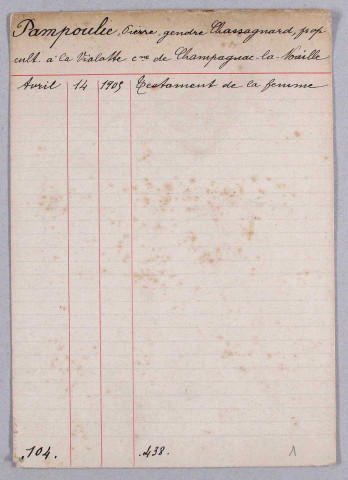 Pampoulie, Pierre, gendre Chassagnard, prop
cult. à la Vialatte cne de Champagnac-la-Noaille
Avril 14 1905 Testament de la femme
.104. .438. 1